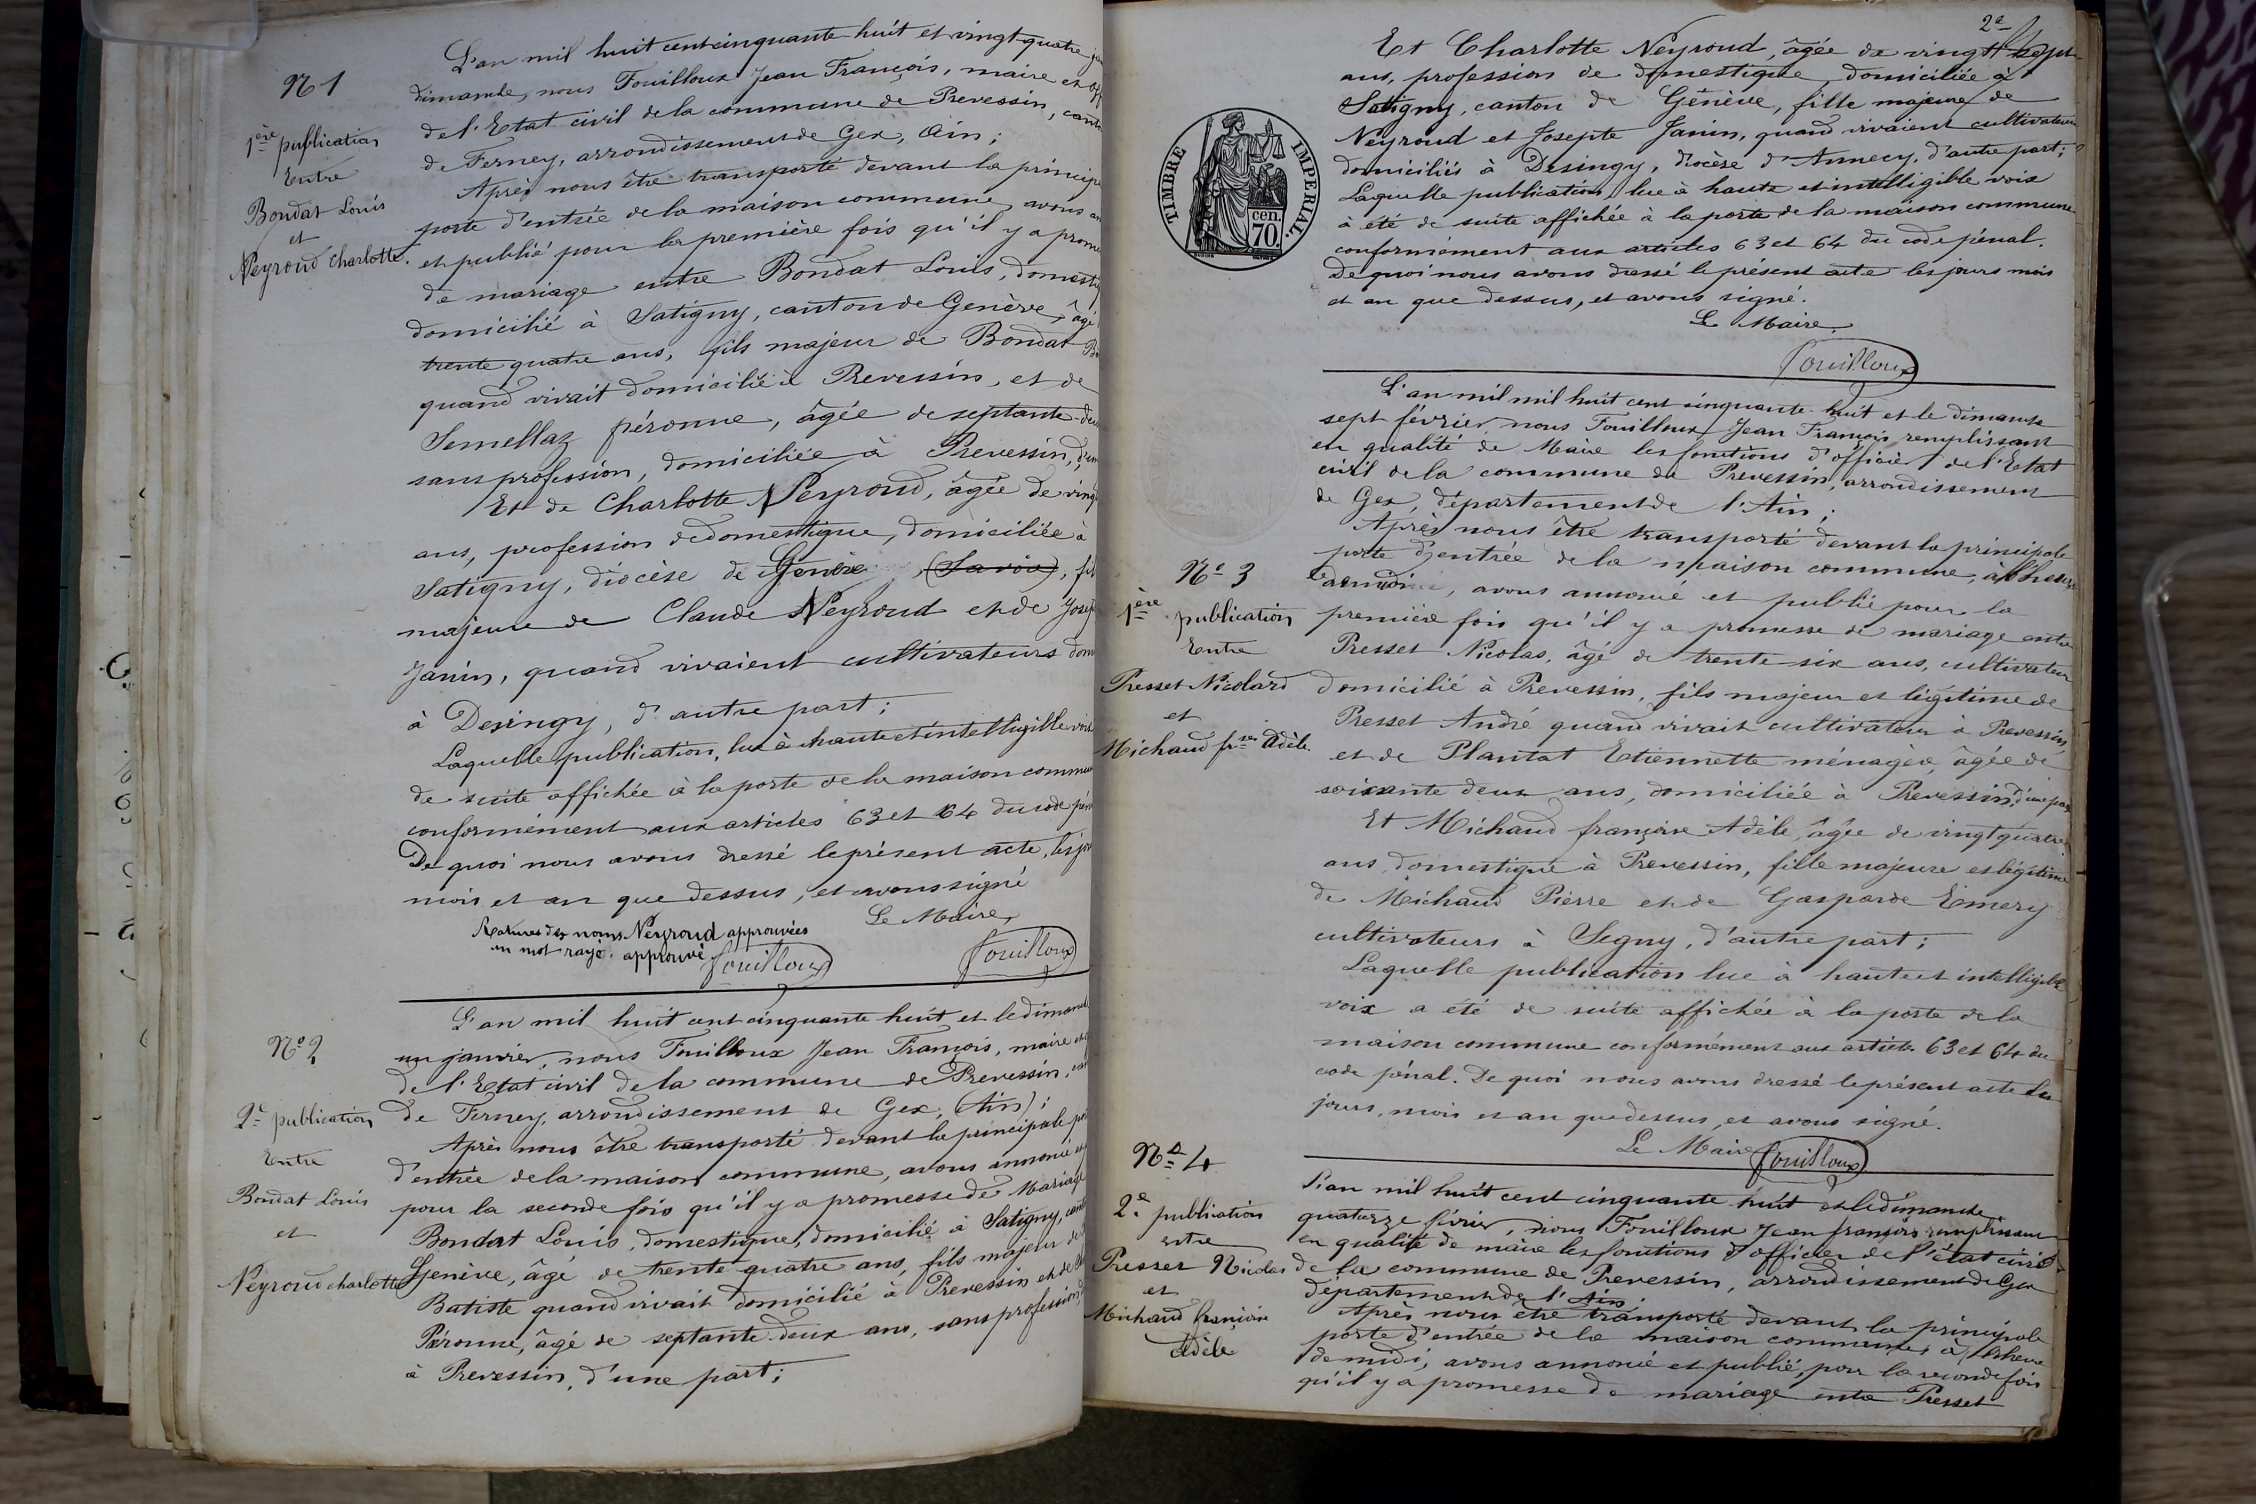 N 1
1ère publication
Entre
Bondat Louis
et
Neyroud Charlotte.
L'an mil huit cent cinquante huit et vingt quatre
dimanche, nous Fouilloux Jean François, maire et off
de l'Etat civil de la commune de Prevessin, cant
de Ferney, arrondissement de Gex, Ain;
Après nous être transporté devant la princip
porte d'entrée de la maison commune, avons an
et publié pour la première fois qu'il y a prome
de mariage entre Bondat Louis, domesti
domicilié à Satigny, canton de Genève, âgé
trente quatre ans, fils majeur de Bondat
quand vivait domicilié à Prevessin, et de
Semellaz péronne, âgée de septante-deu
sans profession, domiciliée à Prevessin, d'un
Et de Charlotte Neyroud, âgée de vingt
ans, profession de domestique, domiciliée à
Satigny, diocèse de Genève, (Savoie), fil
majeure de Claude Neyroud et de Josep
Janin, quand vivaient cultivateurs dom
à Desingy, d'autre part;
Laquelle publication, lue à haute et intelligible voix
de suite affichée à la porte de la maison commun
conformément aux articles 63 et 64 du code pén
De quoi nous avons dressé le présent acte, les jou
mois et an que dessus, et avons signé
Le Maire,
Ratures des noms Neyroud approuvées
un mot rayé. approuvé
Fouilloux
Fouilloux
N° 2
2e publication
Entre
Bondat Louis
et
Neyroud charlotte
L'an mil huit cent cinquante huit et le dimanch
un janvier, nous Fouilloux Jean François, maire et
de l'Etat civil de la commune de Prevessin,
de Ferney, arrondissement de Gex, (Ain);
Après nous être transporté devant la principale po
d'entrée de la maison commune, avons annoncé et
pour la seconde fois qu'il y a promesse de Mariage
Bondat Louis, domestique, domicilié à Satigny, cant
Genève, âgé de trente quatre ans, fils majeur de
Batiste quand vivait domicilié à Prevessin et de
Péronne, âgé de septante deux ans, sans profession,
à Prevessin, d'une part;
2e
Et Charlotte Neyroud, âgée de vingt sept
ans, profession de domestique, domiciliée à
Satigny, canton de Génève, fille majeure de
Neyroud et Josepte Janin, quand vivaient cultivateurs
domiciliés à Desingy, diocèse d'Annecy, d'autre part;
Laquelle publication, lue à haute et intelligible voix
à été de suite affichée à la porte de la maison commune
conformément aux articles 63 et 64 du code pénal.
De quoi nous avons dressé le présent acte les jours mois
et an que dessus, et avons signé.
Le Maire
Fouilloux
TIMBRE IMPERIAL.
cen.
70.
L'an mil mil huit cent cinquante-huit et le dimanche
sept février, nous Fouilloux Jean François remplissant
en qualité de Maire les fonctions d'officier de l'Etat
civil de la commune de Prevessin, arrondissement
de Gex, département de l'Ain;
Après nous être transporté devant la principale
porte d'entrée de la maison commune, à l'heure
de midi, avons annoncé et publié pour la
première fois qu'il y a promesse de mariage entre
Presset Nicolas, âgé de trente-six ans, cultivateur
domicilié à Prevessin, fils majeur et légitime de
Presset André quand vivait cultivateur à Prevessin,
et de Plantat Etiennette ménagère, âgée de
soixante deux ans, domiciliée à Prevessin, d'une part
Et Michaud françoise Adèle, âgée de vingt quatre
ans domestique à Prevessin, fille majeure et légitime
de Michaud Pierre et de Gasparde Emery
cultivateurs à Segny, d'autre part;
Laquelle publication lue à haute et intelligible
voix a été de suite affichée à la porte de la
maison commune conformément aux articles 63 et 64 du
code pénal. De quoi nous avons dressé le présent acte les
jours, mois et an que dessus, et avons signé.
Le Maire
Fouilloux
N° 3
1ère publication
Entre
Presset Nicolard
et
Michaud frse Adèle.
N° 4
2e publication
entre
Presset Nicolas
et
Michaud françoise
Adèle
L'an mil huit cent cinquante huit et le dimanche
quatorze février, nous Fouilloux Jean françois remplissant
en qualité de maire les fonctions d'officier de l'état civil
de la commune de Prevessin, arrondissement de Gex
département de l'Ain.
Après nous être transporté devant la principale
porte d'entrée de la maison commune, à l'heure
de midi, avons annoncé et publié, pour la seconde fois
qu'il y a promesse de mariage entre Presset